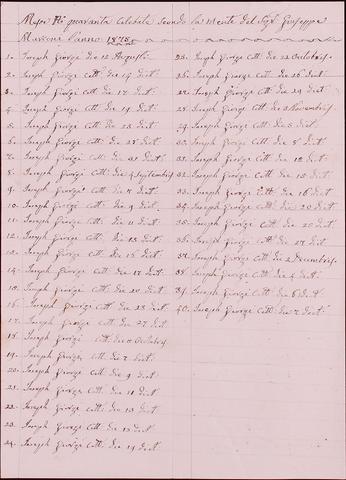 Messe Nº quaranta celebrate secondo la mente del Sigr Giuseppe
l'anno 1875
1. Joseph George die 12 Augusti
2. Joseph George Cott. die 14 dict
3. Joseph George Cott. die 17 dict
4. Joseph George Cott. die 19 dict
5. Joseph George Cott. die 23 dict
6. Joseph George Cott. die 28 dict
7. Joseph George Cott. die 31 dict
8. Joseph George Cott. die 4 Septembris
9. Joseph George Cott. die 7 dict
10. Joseph George Cott. die 9 dict
11. Joseph George Cott. die 11 dict
12. Joseph George Cott. die 13 dict
13. Joseph George Cott. die 15 dict
14. Joseph George Cott. die 17 dict
15. Joseph George Cott. die 20 dict
16. Joseph George Cott. die 23 dict
17. Joseph George Cott. die 27 dict
18. Joseph George Cott. die Octobris
19. Joseph George Cott. die 7 dict
20. Joseph George Cott. die 9 dict
21. Joseph George Cott. die 11 dict
22. Joseph George Cott. die 13 dict
23. Joseph George Cott. die 15 dict
24. Joseph George Cott. die 19 dict
25. Joseph George Cott. die 22 Octobris
26. Joseph George Cott. die 26 dict
27. Joseph George Cott. die 29 dict
28. Joseph George Cott. die 2 Novembris
29. Joseph George Cott. die 5 dict
30. Joseph George Cott. die 8 dict
31. Joseph George Cott. die 12 dict
32. Joseph George Cott. die 15 dict
33. Joseph George Cott. die 16 dict
34. Joseph George Cott. die 20 dict
35. Joseph George Cott. die 25 dict
36. Joseph George Cott. die 27 dict
37. Joseph George Cott. die 2 Decembris
38. Joseph George Cott. die 4 dict
39. Joseph George Cott. die 6 dict
40. Joseph George Cott. die 7 dict